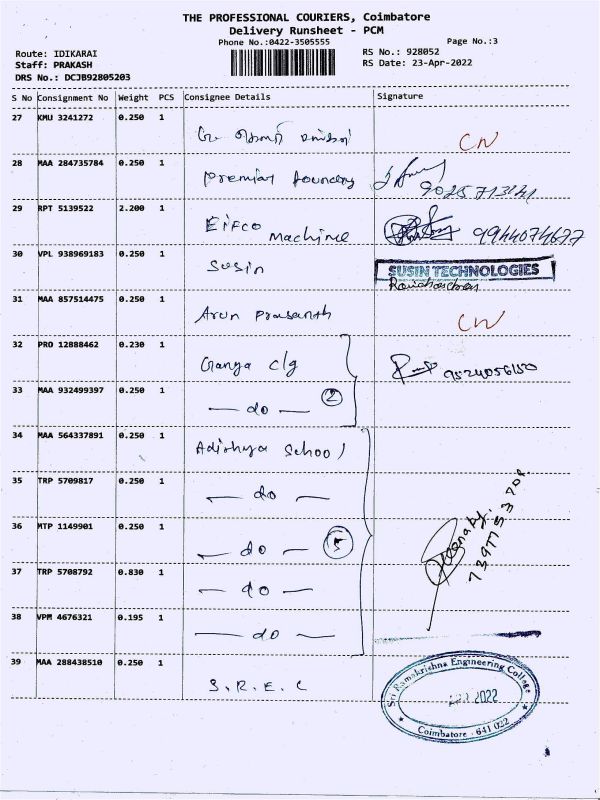 THE PROFESSIONAL COURIERS, Coimbatore
Delivery Runsheet - PCM
Phone No.:0422-3505555
Page No.:3
Route: IDIKARAI
RS No.: 928052
Staff: PRAKASH
RS Date: 23-Apr-2022
DRS No.: DCJB92805203
S No Consignment No Weight PCS Consignee Details Signature
27 KMU 3241272 0.250 1
CN
28 MAA 284735784 0.250 1
Premiar Foundery
29 RPT 5139522 2.200 1
Eifco Machine 9944074677
30 VPL 938969183 0.250 1
Susin SUSIN TECHNOLOGIES
31 MAA 857514475 0.250 1
Arun Prasanth CN
32 PRO 12888462 0.230 1
Ganga c/g
33 MAA 932499397 0.250 1
— do — 2
34 MAA 564337891 0.250 1
Adithya School
35 TRP 5709817 0.250 1
— do —
36 MTP 1149901 0.250 1
— do — 5
37 TRP 5708792 0.830 1
— do —
38 VPM 4676321 0.195 1
— do —
39 MAA 288438510 0.250 1
S.R.E.C
Sri Ramakrishna Engineering College
2022
Coimbatore - 641 022